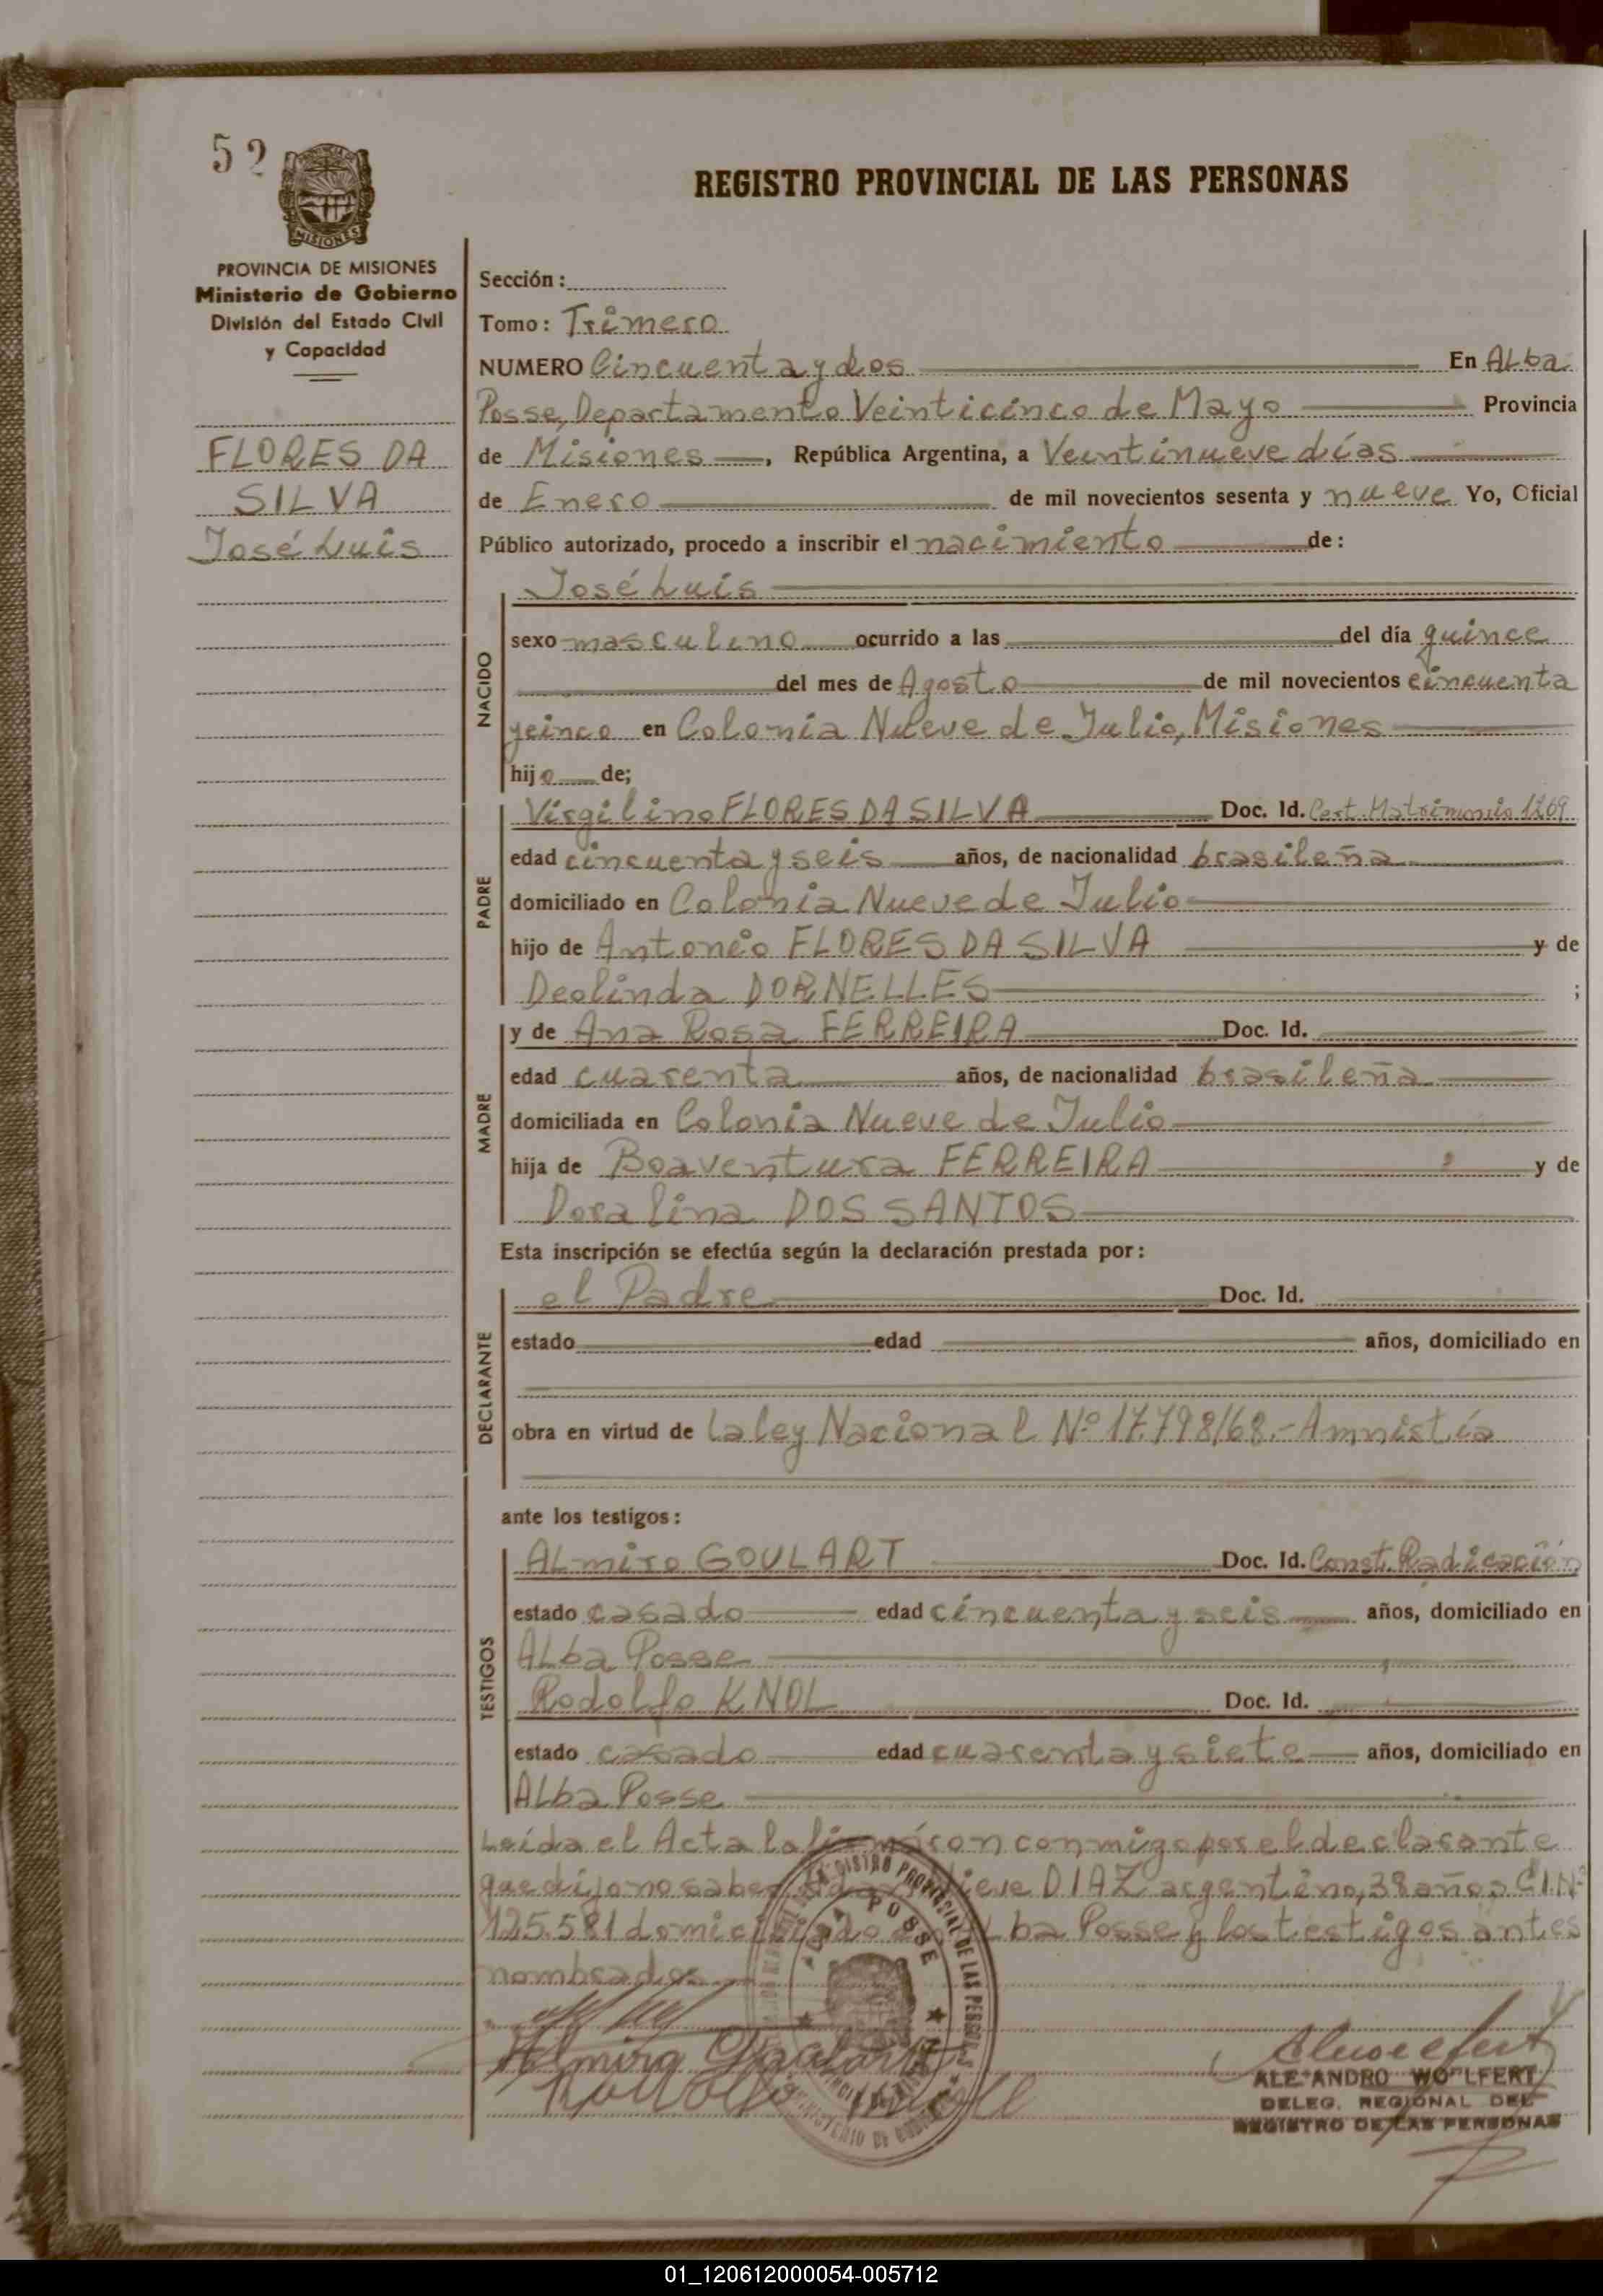 52
MISIONES
PROVINCIA DE MISIONES
Ministerio de Gobierno
División del Estado Civil
y Capacidad
FLORES DA
SILVA
José Luis
REGISTRO PROVINCIAL DE LAS PERSONAS
Sección:
Tomo: Primero
NUMERO Cincuenta y dos En Alba
Posse, Departamento Veinticinco de Mayo Provincia
de Misiones, República Argentina, a Veintinueve días
de Enero de mil novecientos sesenta y nueve Yo, Oficial
Público autorizado, procedo a inscribir el nacimiento de:
NACIDO
José Luis
sexo masculino ocurrido a las del día quince
del mes de Agosto de mil novecientos cincuenta
y cinco en Colonia Nueve de Julio, Misiones
hijo de;
PADRE
Virgilino FLORES DA SILVA Doc. Id. Cert. Matrimonio 1269
edad cincuenta y seis años, de nacionalidad brasileña
domiciliado en Colonia Nueve de Julio
hijo de Antonio FLORES DA SILVA y de
Deolinda DORNELLES ;
MADRE
y de Ana Rosa FERREIRA Doc. Id.
edad cuarenta años, de nacionalidad brasileña
domiciliada en Colonia Nueve de Julio
hija de Boaventura FERREIRA y de
Doralina DOS SANTOS
Esta inscripción se efectúa según la declaración prestada por:
DECLARANTE
el Padre Doc. Id.
estado edad años, domiciliado en
obra en virtud de la ley Nacional Nº 17.798/68.- Amnistía
ante los testigos:
TESTIGOS
Almiro GOULART Doc. Id. Const. Radicación
estado casado edad cincuenta y seis años, domiciliado en
Alba Posse
Rodolfo KNOL Doc. Id.
estado casado edad cuarenta y siete años, domiciliado en
Alba Posse
Leída el Acta la firmáron conmigo por el declarante
que dijo no saber DIAZ argentino, 38 años C.I.Nº
125.581 domiciliado Alba Posse y los testigos antes
nombrados
REGISTRO PROVINCIAL DE LAS PERSONAS
ALBA POSSE
MINISTERIO DE GOBIERNO
Almiro Goulart
ALEJANDRO WOLFERT
DELEG. REGIONAL DEL
REGISTRO DE LAS PERSONAS
01_120612000054-005712